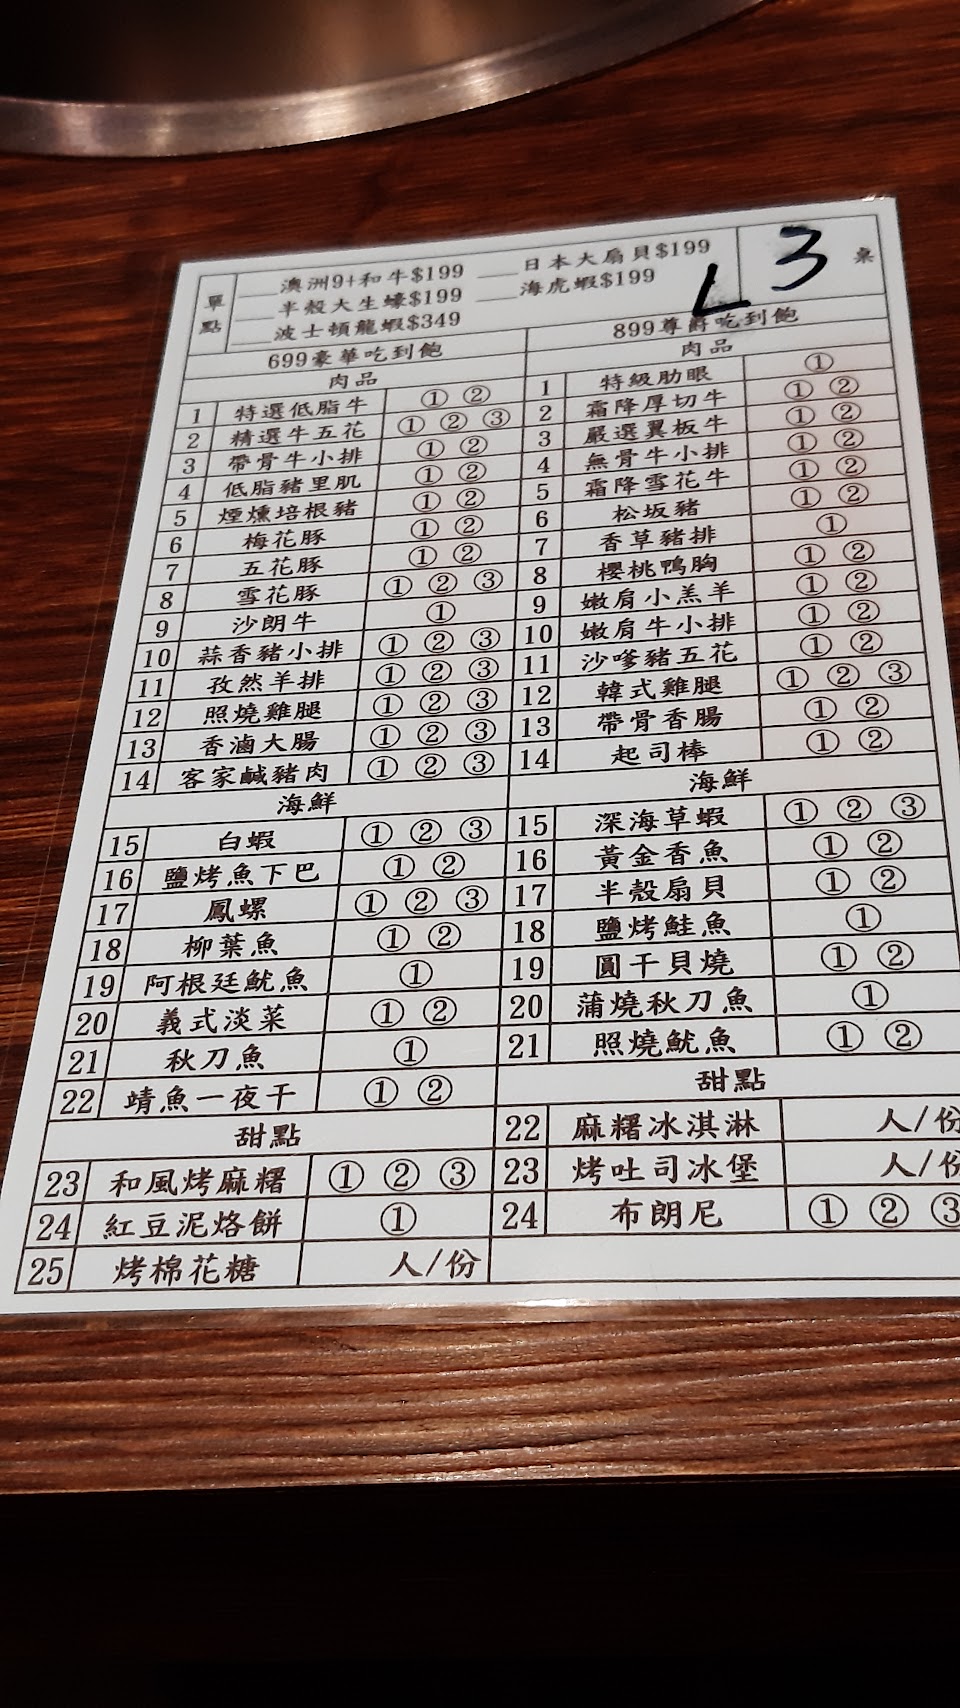 單點
___澳洲9+和牛$199 ___日本大扇貝$199
___半殼大生蠔$199 ___海虎蝦$199
___波士頓龍蝦$349
L3 桌
699豪華吃到飽
肉品
1 特選低脂牛 ① ②
2 精選牛五花 ① ② ③
3 帶骨牛小排 ① ②
4 低脂豬里肌 ① ②
5 煙燻培根豬 ① ②
6 梅花豚 ① ②
7 五花豚 ① ②
8 雪花豚 ① ② ③
9 沙朗牛 ①
10 蒜香豬小排 ① ② ③
11 孜然羊排 ① ② ③
12 照燒雞腿 ① ② ③
13 香滷大腸 ① ② ③
14 客家鹹豬肉 ① ② ③
海鮮
15 白蝦 ① ② ③
16 鹽烤魚下巴 ① ②
17 鳳螺 ① ② ③
18 柳葉魚 ① ②
19 阿根廷魷魚 ①
20 義式淡菜 ① ②
21 秋刀魚 ①
22 靖魚一夜干 ① ②
甜點
23 和風烤麻糬 ① ② ③
24 紅豆泥烙餅 ①
25 烤棉花糖 人/份
899尊爵吃到飽
肉品
1 特級肋眼 ①
2 霜降厚切牛 ① ②
3 嚴選翼板牛 ① ②
4 無骨牛小排 ① ②
5 霜降雪花牛 ① ②
6 松坂豬 ① ②
7 香草豬排 ①
8 櫻桃鴨胸 ① ②
9 嫩肩小羔羊 ① ②
10 嫩肩牛小排 ① ②
11 沙嗲豬五花 ① ②
12 韓式雞腿 ① ② ③
13 帶骨香腸 ① ②
14 起司棒 ① ②
海鮮
15 深海草蝦 ① ② ③
16 黃金香魚 ① ②
17 半殼扇貝 ① ②
18 鹽烤鮭魚 ①
19 圓干貝燒 ① ②
20 蒲燒秋刀魚 ①
21 照燒魷魚 ① ②
甜點
22 麻糬冰淇淋 人/份
23 烤吐司冰堡 人/份
24 布朗尼 ① ② ③